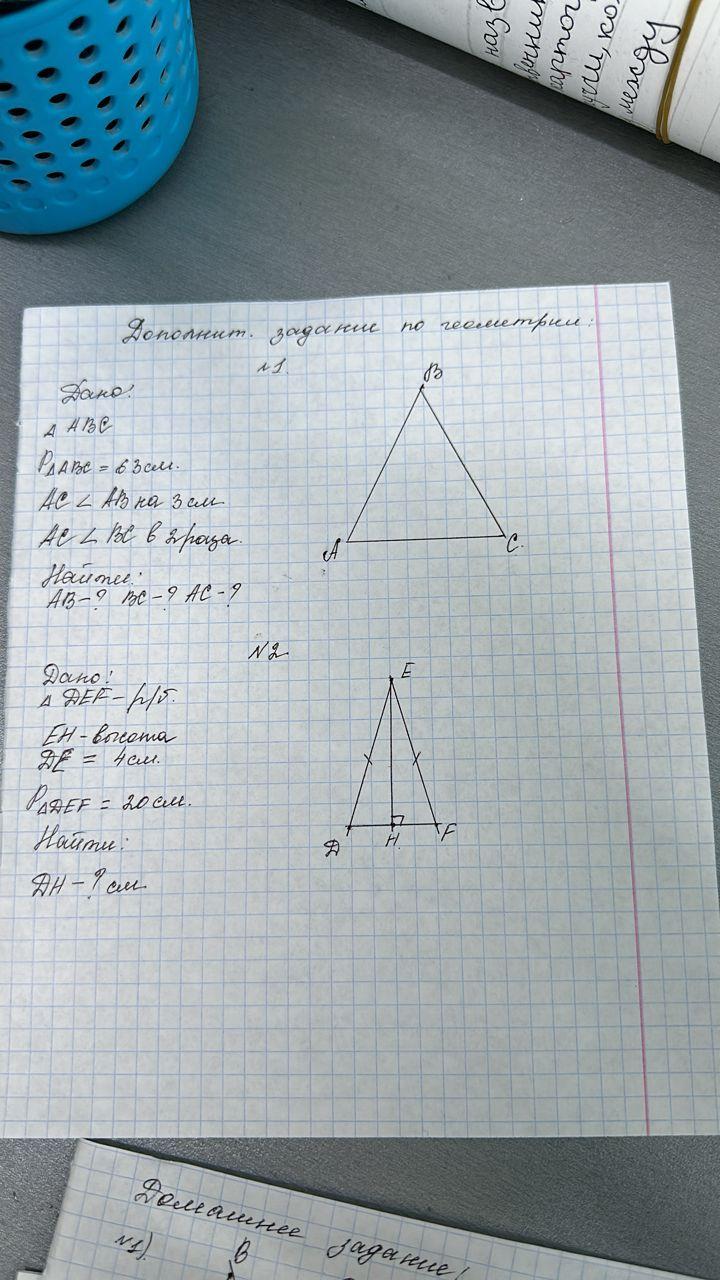 назв
ённик
картог
учи, ко
между
Дополнит. задание по геометрии:
№1.
Дано:
△ ABC
P△ABC = 63см.
AC < AB на 3 см
AC < BC в 2 раза.
Найти:
AB-? BC-? AC-?
B
A
C.
№2
Дано:
△ DEF - р/б.
EH - высота
DE = 4см.
P△DEF = 20 см.
Найти:
DH - ? см
E
D
H.
F
Домашнее задание!
№1)
B